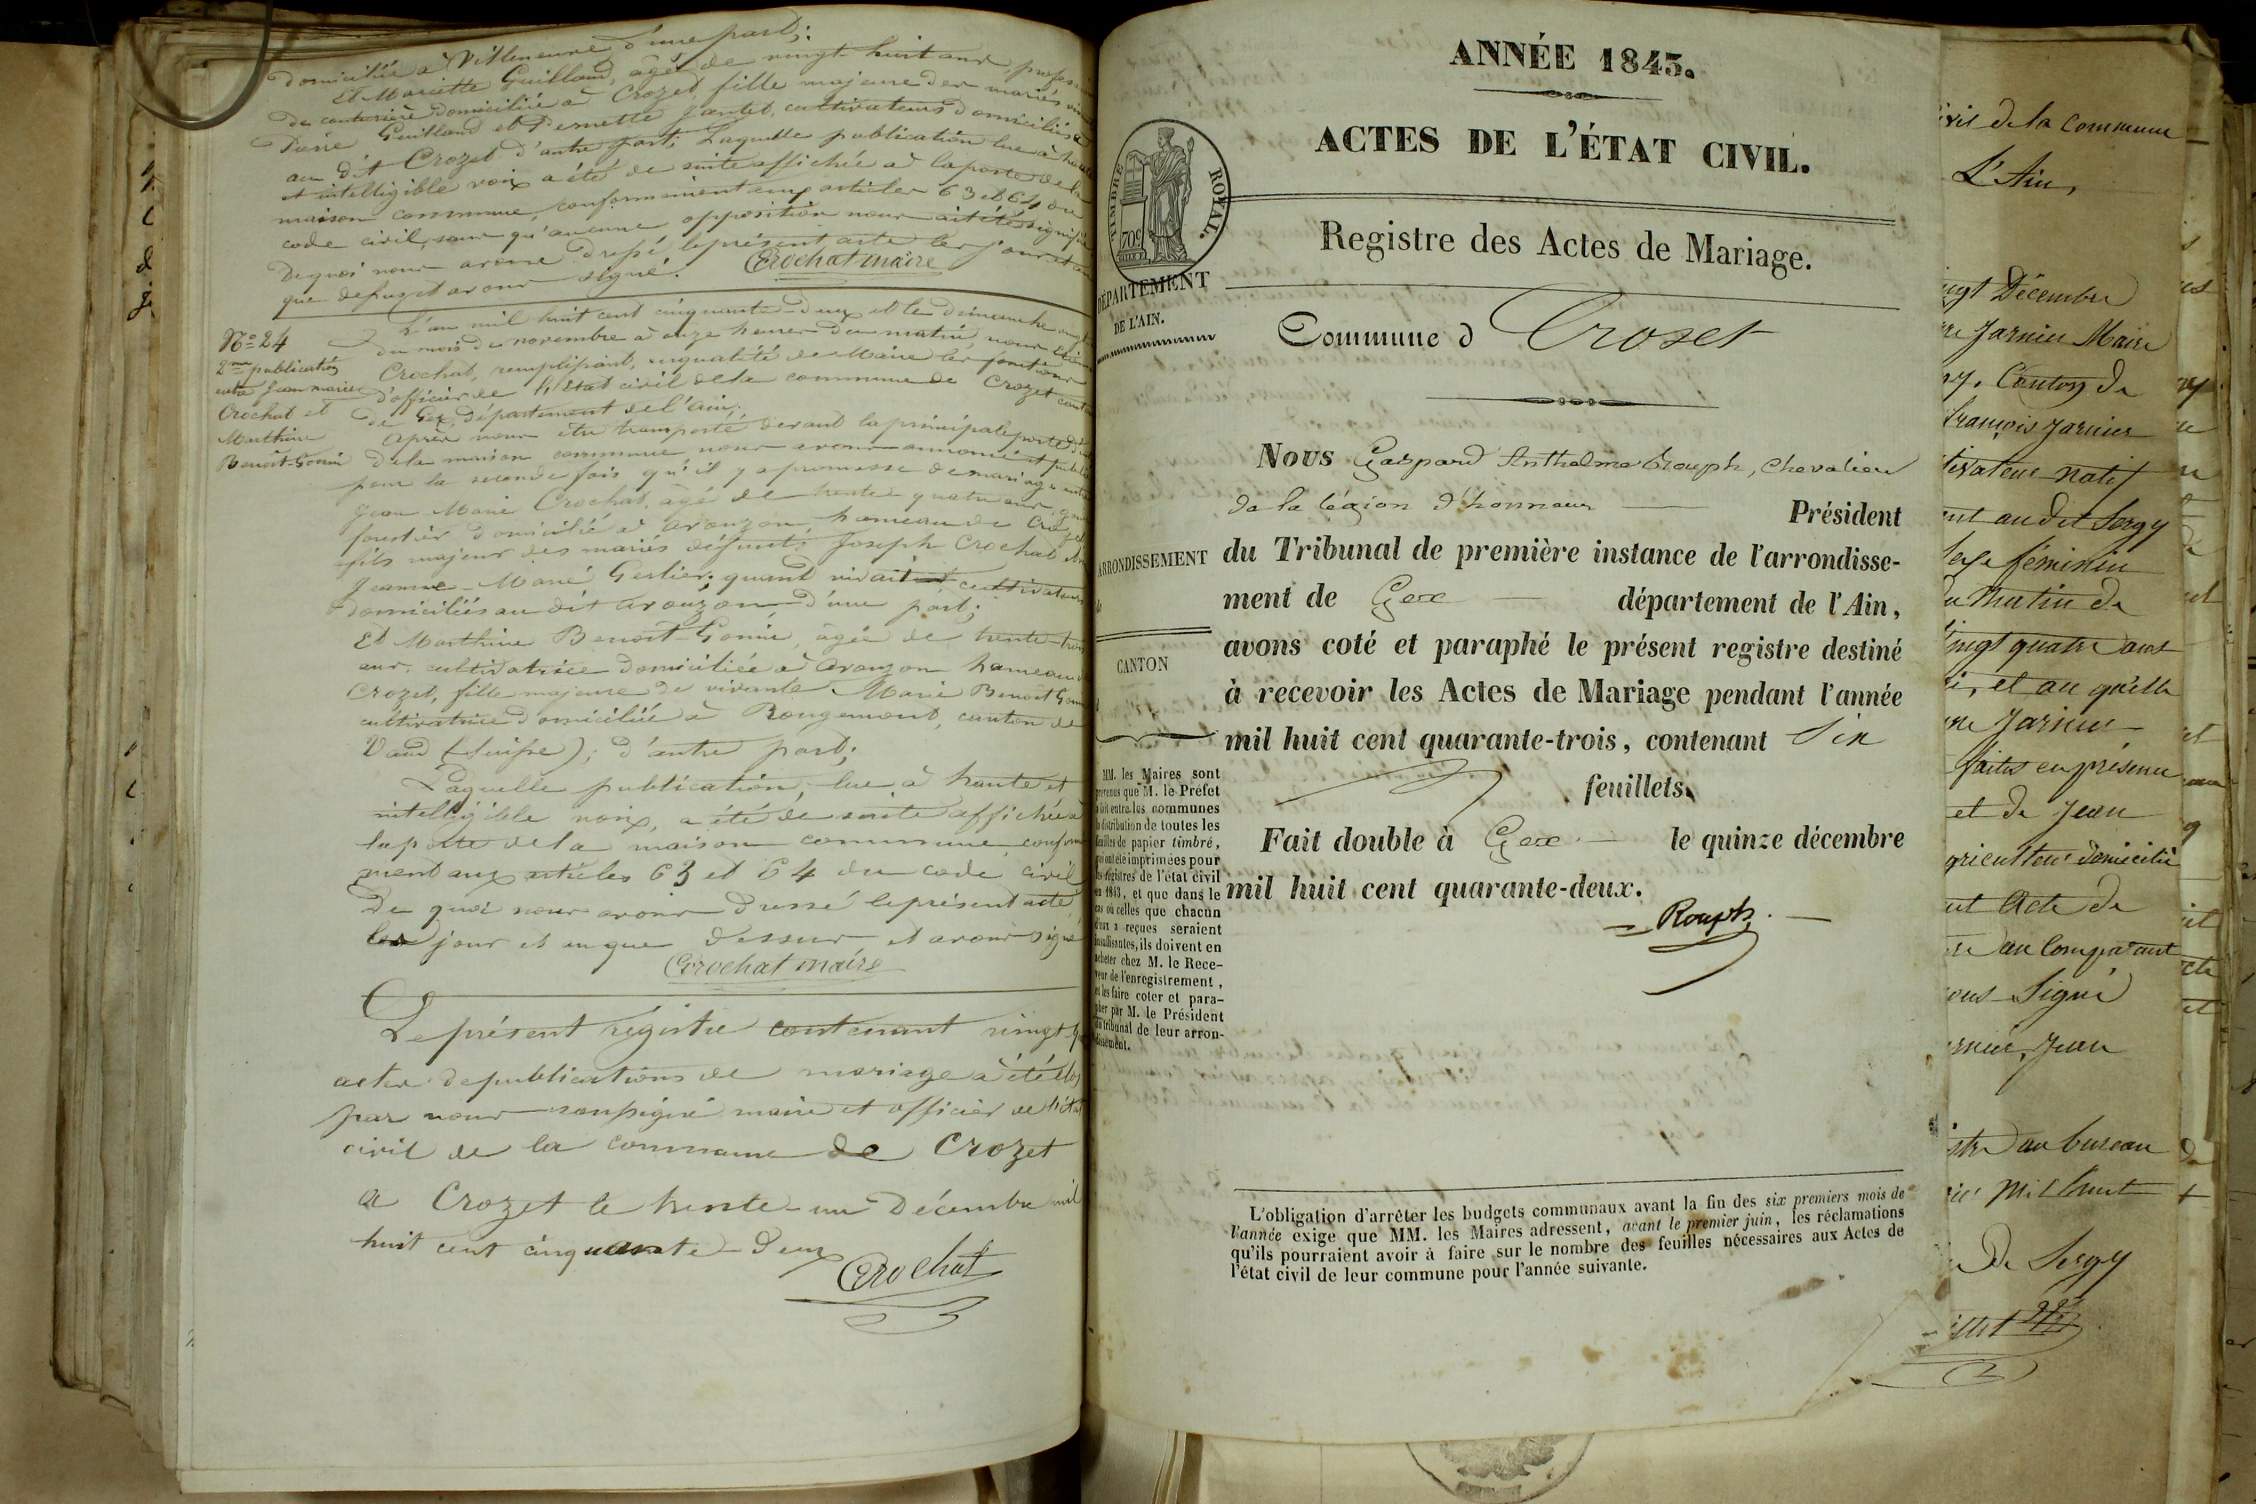 domiciliée à Villeneuve d'une part;
Et Mariette Guilland, âgée de vingt huit ans, profession
de couturière domiciliée à Crozet, fille majeure des mariés
Pierre Guilland et Pernette Jantet, cultivateurs domiciliés
au dit Crozet d'autre part; Laquelle publication lue à haute
et intelligible voix a été de suite affichée à la porte de la
maison commune, conformément aux articles 63 et 64 du
code civil, sans qu'aucune opposition nous ait été signifiée
De quoi nous avons dressé le présent acte les jour et an
que dessus et avons signé. Crochat maire
N° 24
2me publication
entre Jean marie
Crochat et
Marthine
Benoit-Gonin
L'an mil huit cent cinquante-deux et le dimanche
du mois de novembre à onze heures du matin, nous
Crochat, remplissant, en qualité de Maire les fonctions
d'officier de l'Etat civil de la commune de Crozet canton
de Gex, département de l'ain;
Après nous être transporté devant la principale porte
de la maison commune, nous avons annoncé et publié
pour la seconde fois qu'il y a promesse de mariage entre
Jean Marie Crochat, âgé de trente quatre ans,
forestier domicilié à avouzon, hameau de Crozet
fils majeur des mariés défunts Joseph Crochat et
Jeanne-Marie Gestier; quand vivait cultivateurs
domiciliés au dit avouzon, d'une part;
Et Marthine Benoit-Gonin, âgée de trente trois
ans, cultivatrice domiciliée à avouzon hameau
Crozet, fille majeure de vivante Marie Benoit Gonin
cultivatrice domiciliée à Rougemont, canton de
Vaud (Suisse); d'autre part;
Laquelle publication, lue à haute et
intelligible voix, a été de suite affichée à
la porte de la maison commune, conformé
ment aux articles 63 et 64 du code civil
De quoi nous avons dressé le présent acte,
les jour et an que dessus et avons signé
Crochat maire
Le présent régistre contenant vingt-
actes de publications de mariage a été clos
par nous soussigné maire et officier de l'état
civil de la commune de Crozet
a Crozet le trente-un Décembre mil
huit cent cinquante-deux
Crochat
ANNÉE 1843.
ACTES DE L'ÉTAT CIVIL.
TIMBRE ROYAL.
70c
Registre des Actes de Mariage.
DÉPARTEMENT
DE L'AIN.
Commune d Crozet
Nous Gaspard Anthelme Rouph, chevalier
de la légion d'honneur Président
ARRONDISSEMENT
du Tribunal de première instance de l'arrondisse-
ment de Gex département de l'Ain,
avons coté et paraphé le présent registre destiné
CANTON
à recevoir les Actes de Mariage pendant l'année
mil huit cent quarante-trois, contenant Six
feuillets.
Fait double à Gex le quinze décembre
mil huit cent quarante-deux.
Rouph
MM. les Maires sont
prévenus que M. le Préfet
a fait entre les communes
la distribution de toutes les
feuilles de papier timbré,
qui ont été imprimées pour
les registres de l'état civil
en 1843, et que dans le
cas où celles que chacun
d'eux a reçues seraient
insuffisantes, ils doivent en
acheter chez M. le Rece-
veur de l'enregistrement,
et les faire coter et para-
pher par M. le Président
du tribunal de leur arron-
dissement.
L'obligation d'arrêter les budgets communaux avant la fin des six premiers mois de
l'année exige que MM. les Maires adressent, avant le premier juin, les réclamations
qu'ils pourraient avoir à faire sur le nombre des feuilles nécessaires aux Actes de
l'état civil de leur commune pour l'année suivante.
de la Commune
L'Ain,
Décembre
Jarnier Maire
Canton de
françois Jarnier
natif
au dit Sergy
Sexe féminin
Matin de
vingt quatre ans
et au quelle
Jarnier
faites en présence
et de Jean
domicilié
Acte de
au Comparant
Signé
Jean
au bureau
mil huit
De Sergy